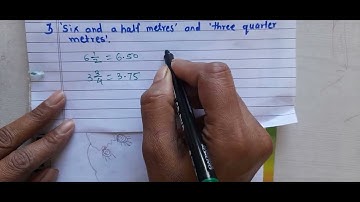 7) 'Six and a half metres' and 'three quarter
metres'.
6 1/2 = 6.50
3 3/4 = 3.75